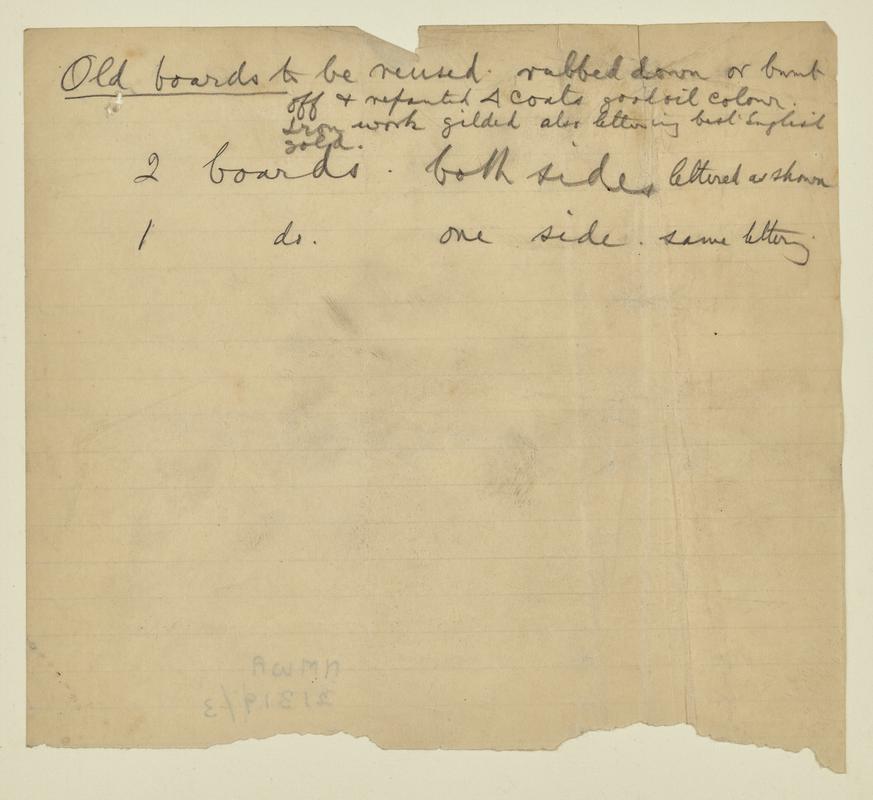 Old boards to be reused. rubbed down or burnt
off & repainted 4 coats good oil colour.
Iron work gilded also lettering best English
gold.
2 boards. both sides lettered as shown
1 do. one side. same lettering
AWMM
21319/3